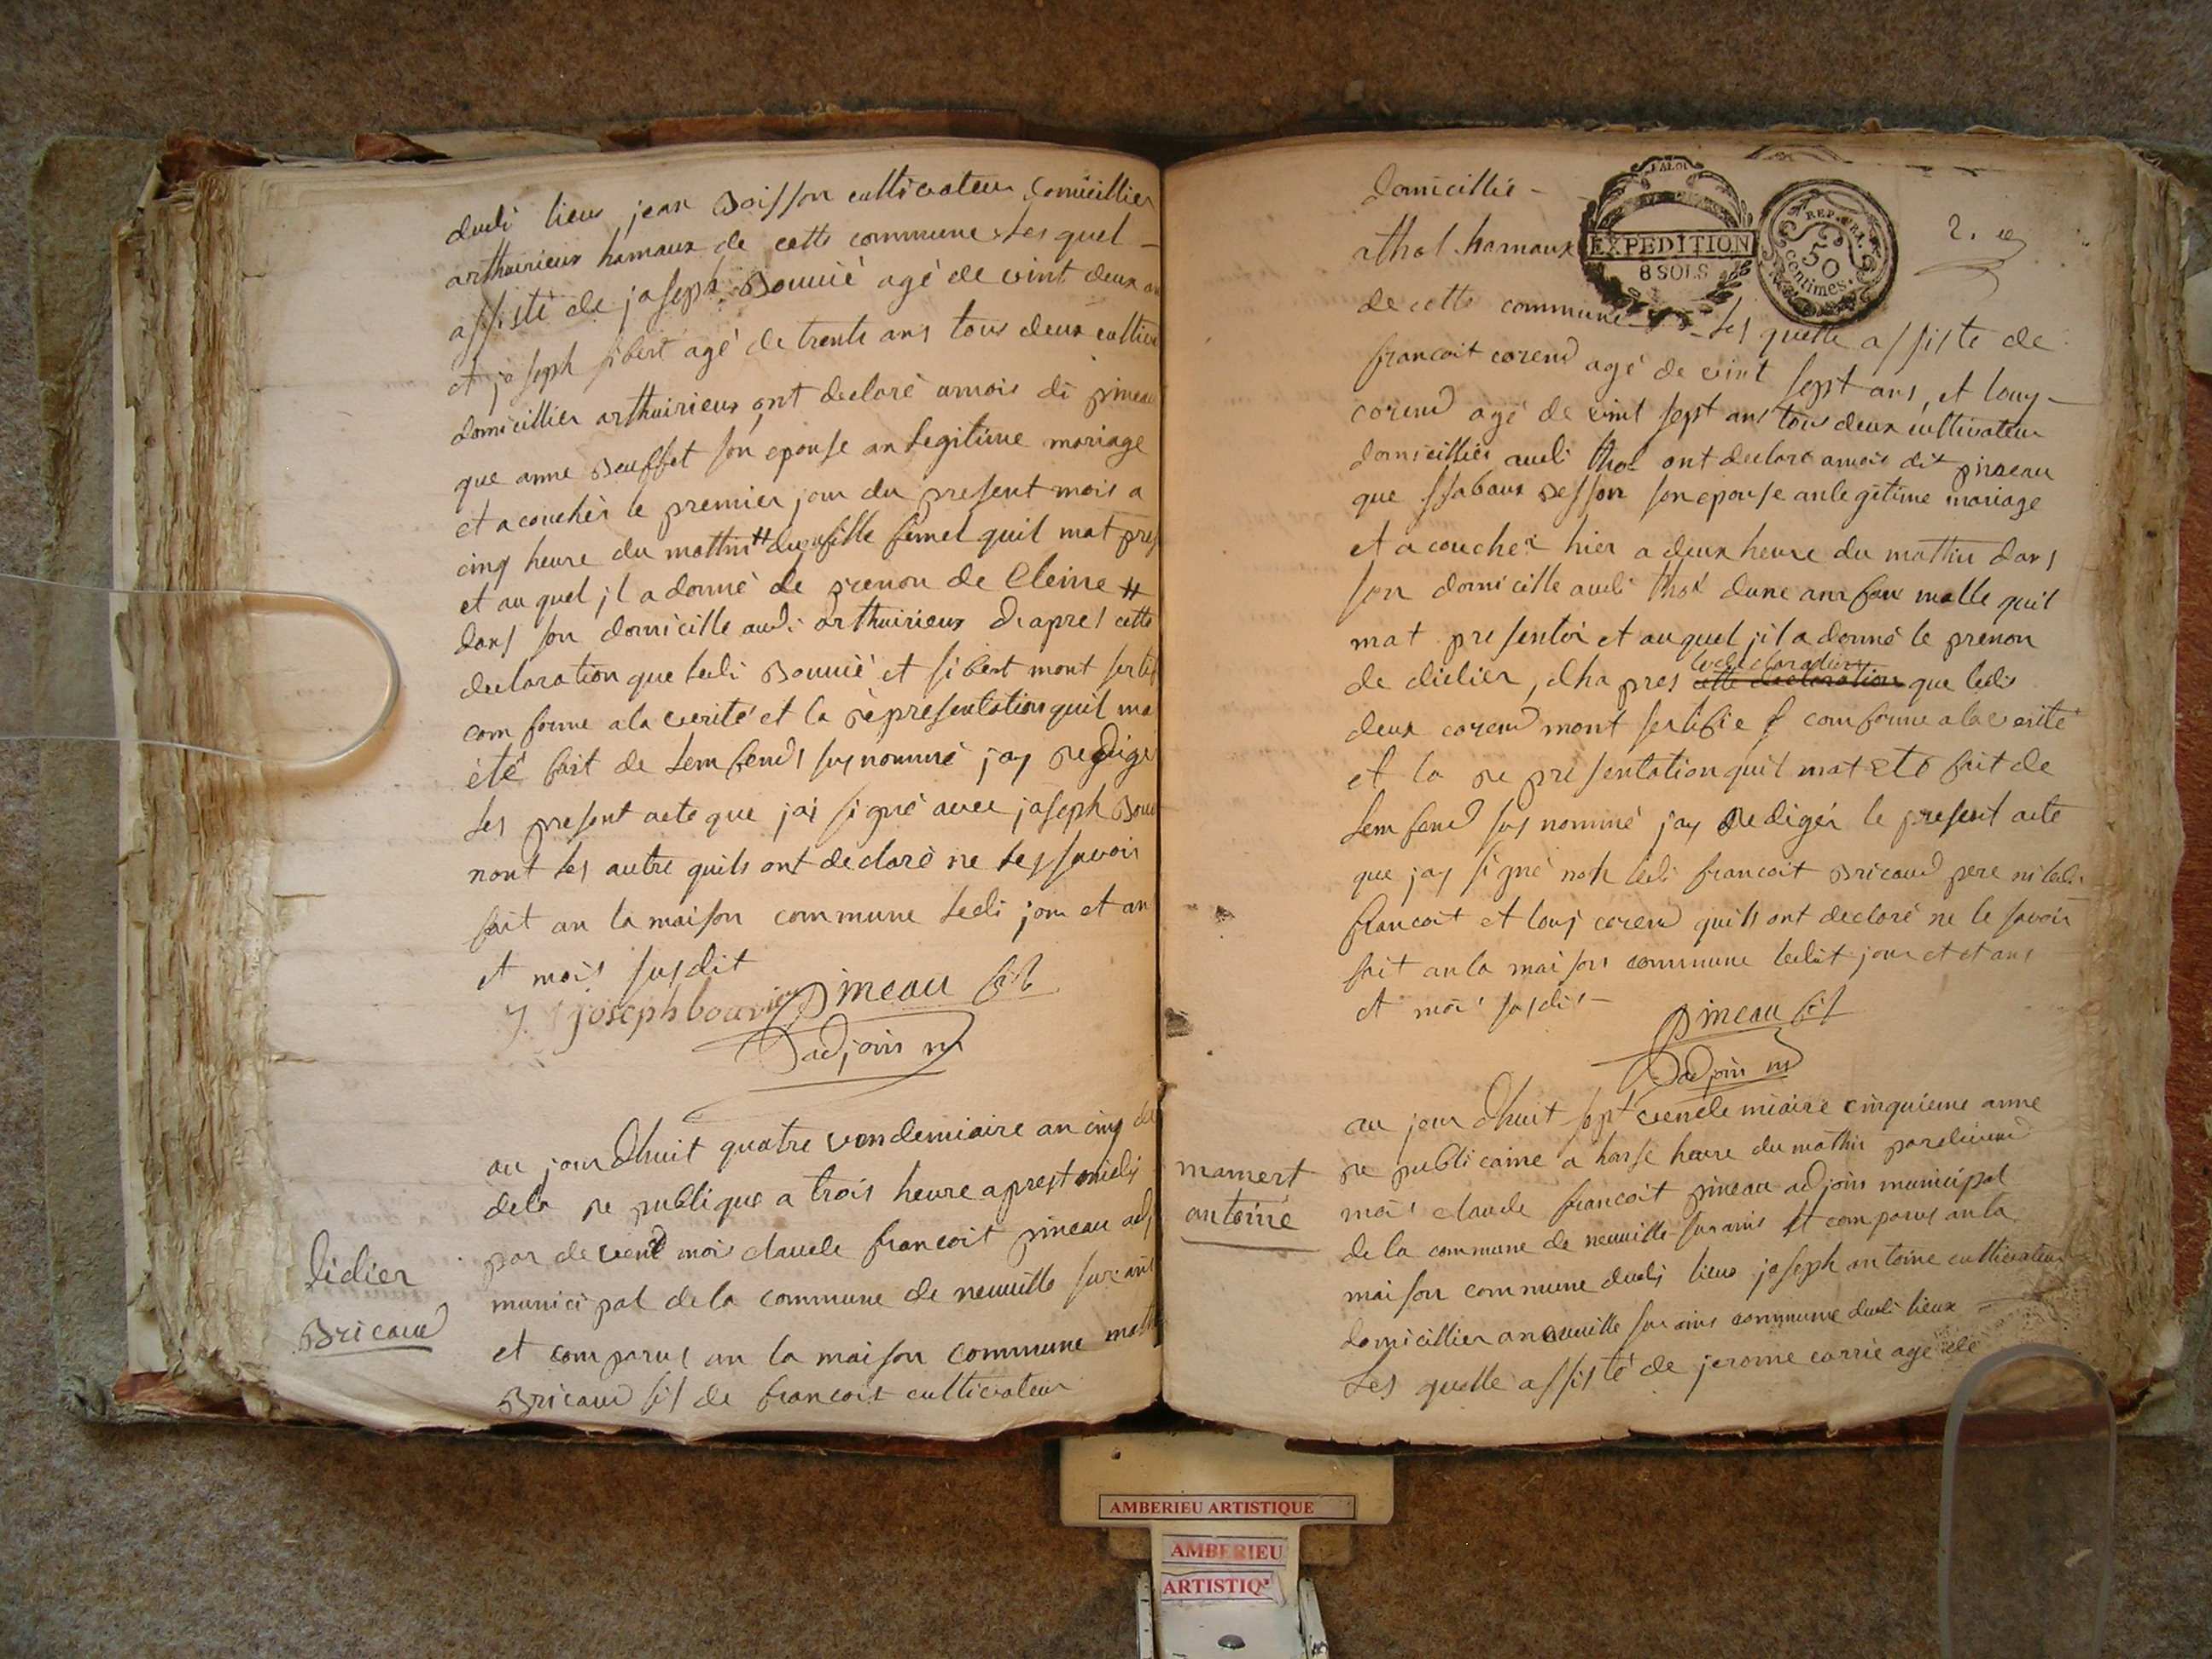 dudi lieus jean Boisson cultivateur domicillier
arthuirieux hamaux de cette commune Les quel -
assisté de joseph Bouvié agé de vint deux an
et joseph sibert agé de trente ans tous deux cultiv
domicillier arthuirieux ont declaré amois di pineau
que anne Beuffet son epouse an Legitime mariage
et acouchèr le premier jour du present mois a
cinq heure du mattin # dunfille fimel quil mat pres
et au quel jl a donné de prenon de Cleine #
dans son domicille audi arthuirieux Dapres cette
declaration que Ledi Bouvié et sibert mont sertif
com forme ala verité et la representation quil ma
èté fait de Lemfend susnommé jay Redige
Les present acte que jai signé avec joseph Bouv
nont Les autre quils ont declaré ne Les savoir
fait an la maison commune Ledi jour et an
et mois susdit
J. joseph bouvier Pineau fils
adjoin m
au jourdhuit quatre vendemiaire an cinq de
dela re publique a trois heure aprest midi
par devend mois claude francoit pineau adj
municipal dela commune de neuville sur ains
et comparus an la maison commune math
Bricaud fils de francois cultivateur
didier
Bricaud
Domicillié -
athol hamaux
de cette commune - Les quelle assiste de
francoit corend agé de vint sept ans, et louy -
corend agé de vint sept ans tous deux cultivateur
domicilliés audi thol ont declaré amois dit pineau
que ssabaux Besson son epouse anlegitime mariage
et a coucher hier a deux heure du mattin dans
son domicille audi thol dune amfan malle quil
mat presentér et auquel jl a donné le prenon
de didier, dha pres cette declaration la declaration que ledis
deux corend mont sertifie comforme ala verité
et la re presentation quil mat eté fait de
Lemfend sus nommé jay Redigér le present acte
que jay signé noh ledi francoit Bricaud pere ni ledi
francoit et louis corend quils ont declaré ne le savoir
fait an la maison commune ledit jour et et ans
et mois susdis -
Pineau fils
adjoin m
au jourdhuit sept vendemiaire cinquieme anne
re publicaine a honse heure du mathin pardevend
mois claude francoit pineau adjoin municipal
de la commune de neuville sur ains et comparus anla
maison commune dudi lieus joseph antoine cultivateur
domicillier aneuville sur ains commune dudi lieux
Les quelle assisté de jerome carrie age de
mamert
antoine
EXPEDITION
8 SOLS
REP. FRA.
50
Centimes.
AMBERIEU ARTISTIQUE
AMBERIEU
ARTISTIQ